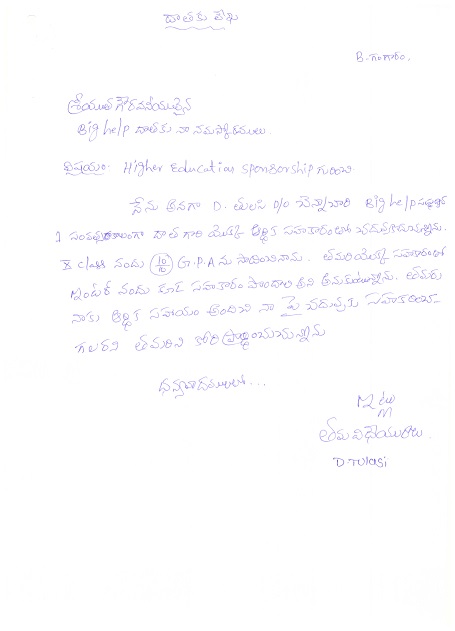 దాతకు లేఖ
B. గంగారం.
శ్రీయుత గౌరవనీయులైన
Big help దాతకు నా నమస్కారములు.
విషయం: Higher Education sponsorship గురించి
నేను అనగా D. తులసి D/o చెన్నాచారి Big help
1 సంవత్సరకాలంగా దాత గారి యొక్క ఆర్థిక సహకారంతో చదువుకుంటున్నాను.
X class నందు 10/10 G.P.A ను సాధించినాను. తమరియొక్క సహకారంతో
ఇంటర్ నందు కూడ సహకారం పొందాలి అని అనుకుంటున్నాను. తమరు
నాకు ఆర్థిక సహాయం అందించి నా పై చదువుకు సహకరించ-
గలరని తమరిని కోరి ప్రార్థించుచున్నాను
ధన్యవాదములతో...
ఇట్లు
తమ విధేయురాలు.
D Tulasi